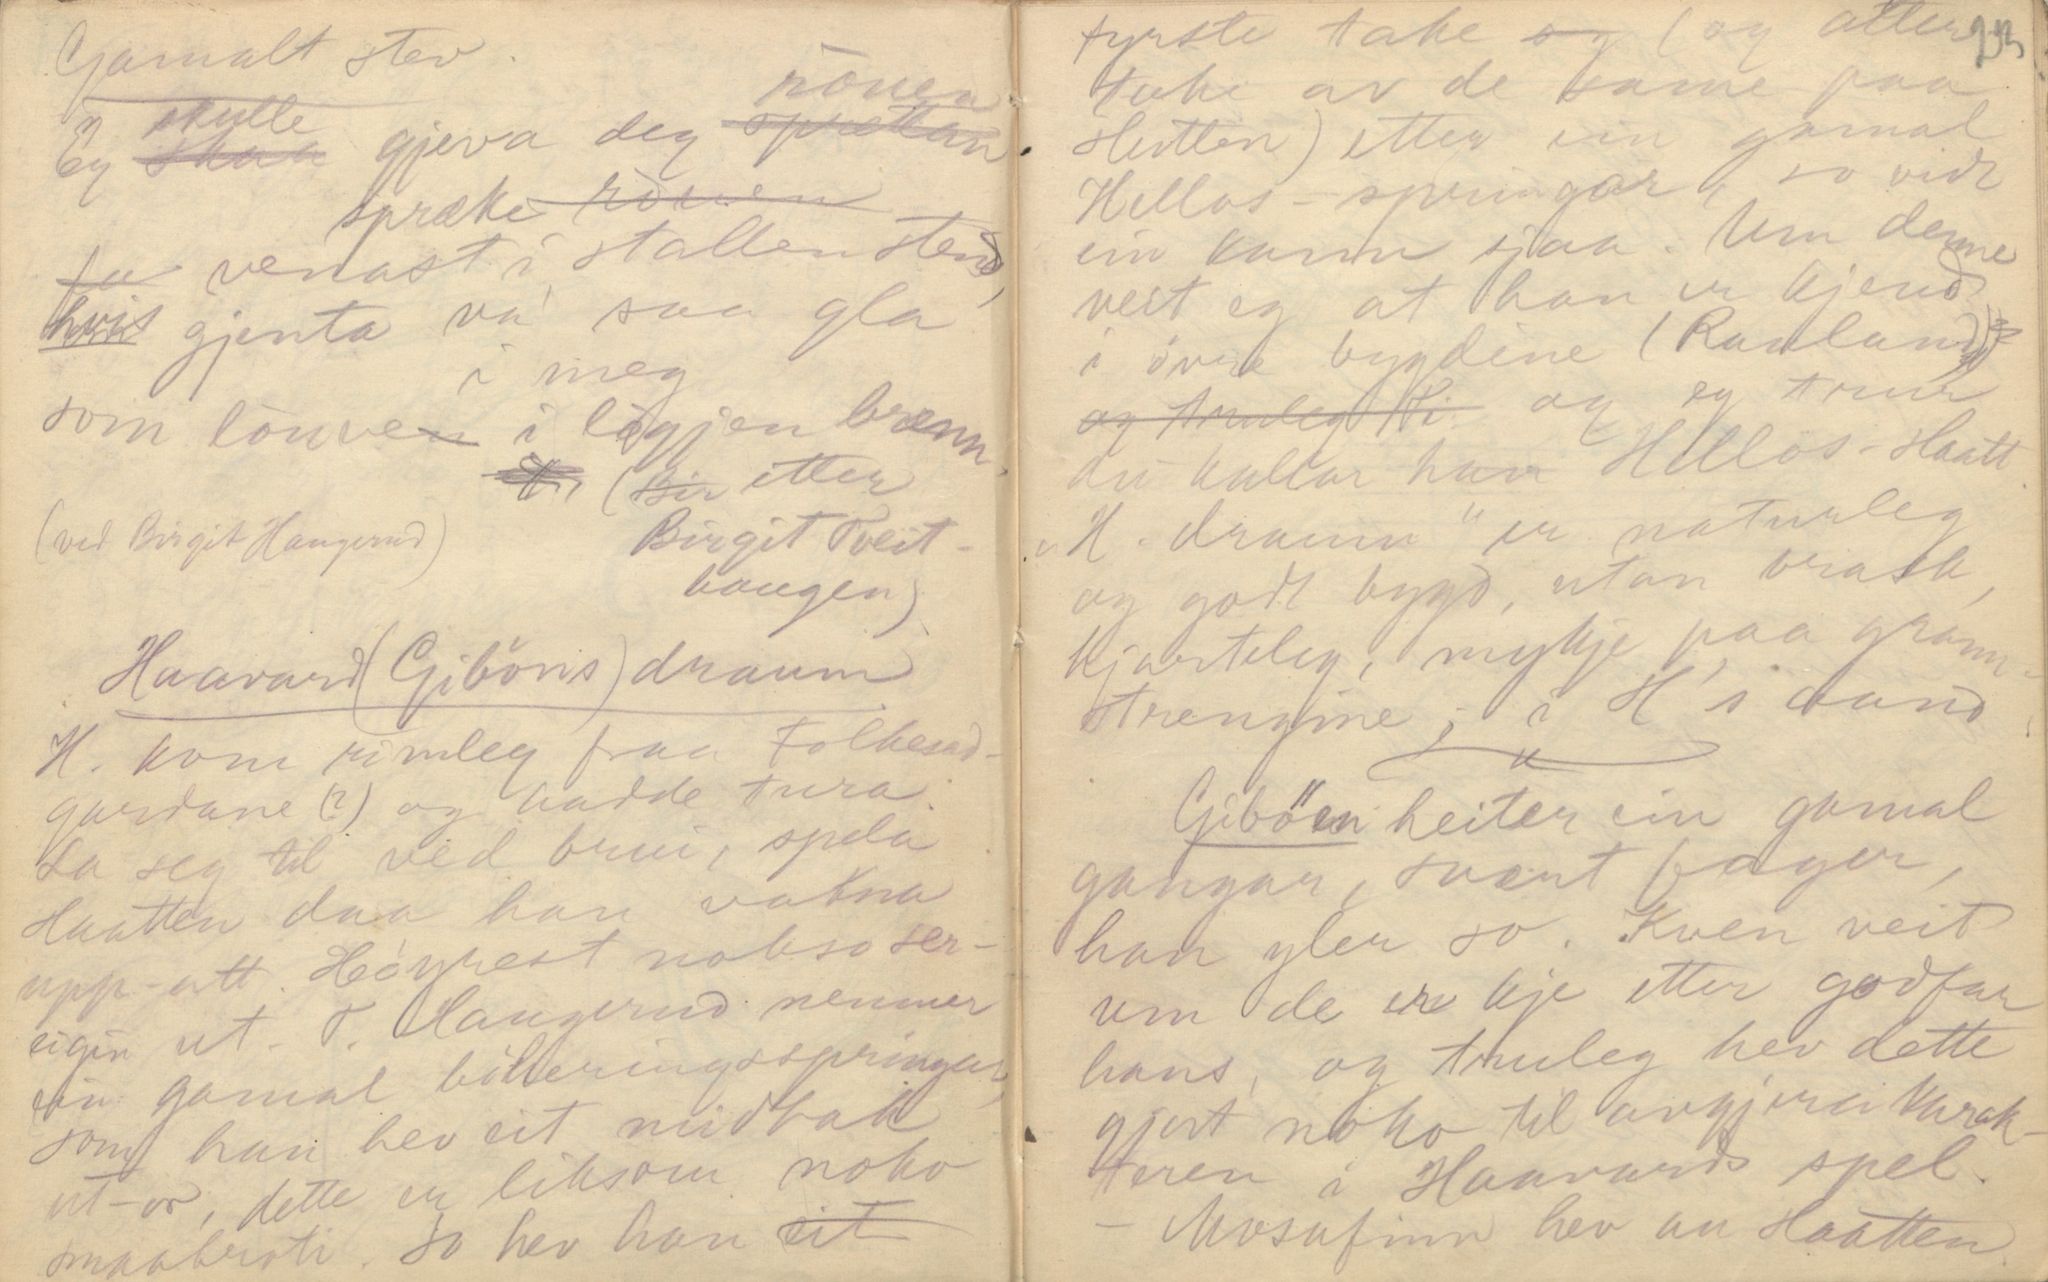 Gamalt stev.
skulle röuen
Eg skaa gjeva deg sprettan
spræke röuen
fo venast i stallen stend,
hvis gjenta va' saa gla
i meg
som louven i logjen brænn.
(Bir etter
(ved Birgit Haugerud) Birgit Tveit-
haugen)
Haavard (Gibøns) draum
H. kom rimleg fraa Folkesad-
gardane (?) og hadde tura.
La seg til ved brui, spela
Haatten daa han vakna
upp-att. Høyrest nokso ser-
eigin ut. T. Haugerud nemner
ein gamal springar,
som han hev eit midbak
ut-or, dette er liksom noko
smaabroti. So hev han eit
fyrste take og (og atter
take av de same paa
Slutten) etter ein gamal
Hellos-springar, so vidt
ein kann sjaa. Um denne
veit eg at han er kjend
i øvre bygdine (Rauland)
og truleg Ti og eg trur
du kallar han Hellos-Haatt
"H. draum" er naturleg
og godt bygd, utan brask,
kjarteleg, mykje paa grann-
strengine, i H's aand.
Gibøen heiter ein gamal
gangar, svært fager,
han yler so. Kven veit
um de er kje etter godfar
hans, og truleg hev dette
gjort noko til avgjera karak-
teren i Haavards spel.
- Mosafinn hev au Haatten